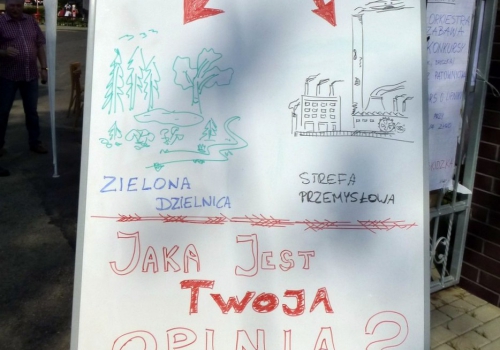 ZIELONA
DZIELNICA
STREFA
PRZEMYSŁOWA
JAKA JEST
TWOJA
OPINIA?
ORKIESTRA
KONKURSY